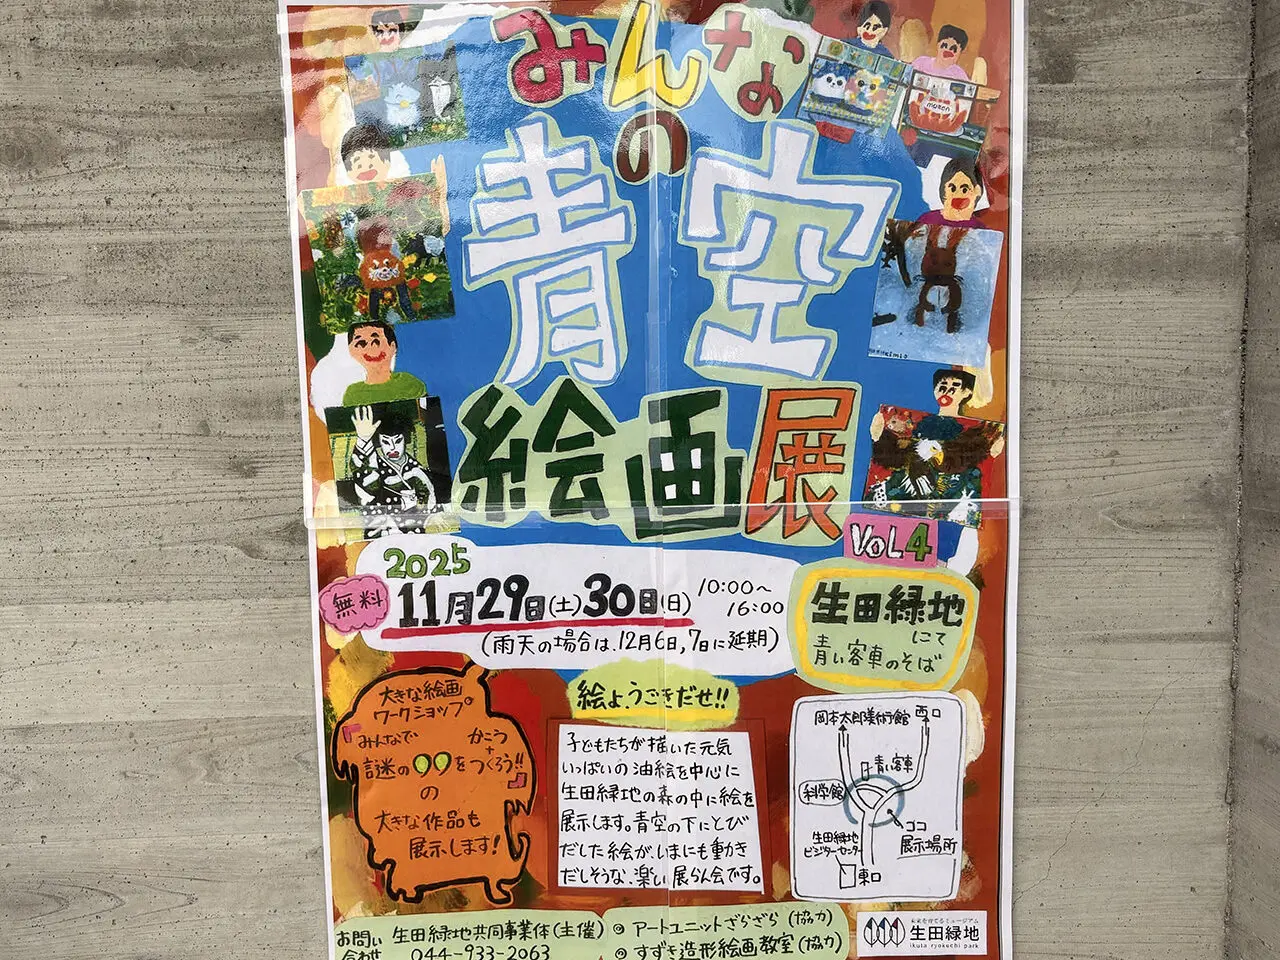 みんなの
青空
絵画展
VOL4
2025
無料
11月29日(土)30日(日)
10:00〜
16:00
(雨天の場合は、12月6日,7日に延期)
生田緑地
にて
青い客車のそば
大きな絵画
ワークショップ
『みんなで かこう
+
謎の99をつくろう!!』
の
大きな作品も
展示します!
絵よ、うごきだせ!!
子どもたちが描いた元気
いっぱいの油絵を中心に
生田緑地の森の中に絵を
展示します。青空の下にとび
だした絵が、いまにも動き
だしそうな、楽しい展らん会です。
岡本太郎美術館 西口
青い客車
科学館
ココ
展示場所
生田緑地
ビジターセンター
東口
お問い
合わせ
生田緑地共同事業体(主催)
044-933-2063
◎ アートユニットざらざら(協力)
◎ すずき造形絵画教室(協力)
未来を育てるミュージアム
生田緑地
ikuta ryokuchi park
moron